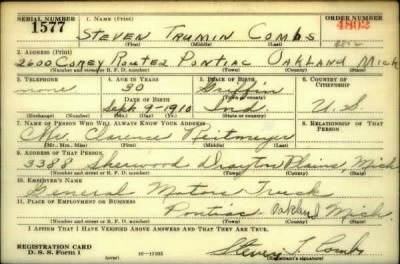 SERIAL NUMBER 1. NAME (Print) ORDER NUMBER
1577 STEVEN TRUMIN COMBS 4802
(First) (Middle) (Last)
2. ADDRESS (Print)
2600 COREY ROUTE 2 PONTIAC OAKLAND MICH
(Number and street or R. F. D. number) (Town) (County) (State)
3. TELEPHONE 4. AGE IN YEARS 5. PLACE OF BIRTH 6. COUNTRY OF CITIZENSHIP
none 30 Griffin
DATE OF BIRTH (Town or county)
Sept 9-1910 Ind. U S
(Exchange) (Number) (Mo.) (Day) (Yr.) (State or country)
7. NAME OF PERSON WHO WILL ALWAYS KNOW YOUR ADDRESS 8. RELATIONSHIP OF THAT PERSON
Mr. Clarence Heitmeyer
(Mr., Mrs., Miss) (First) (Middle) (Last)
9. ADDRESS OF THAT PERSON
3388 Sherwood Drayton Plains, Mich
(Number and street or R. F. D. number) (Town) (County) (State)
10. EMPLOYER'S NAME
General Motors Truck
11. PLACE OF EMPLOYMENT OR BUSINESS
Pontiac Oakland Mich.
(Number and street or R. F. D. number) (Town) (County) (State)
I AFFIRM THAT I HAVE VERIFIED ABOVE ANSWERS AND THAT THEY ARE TRUE.
REGISTRATION CARD
D. S. S. Form 1 16-17105 Steven T. Combs
(Registrant's signature)